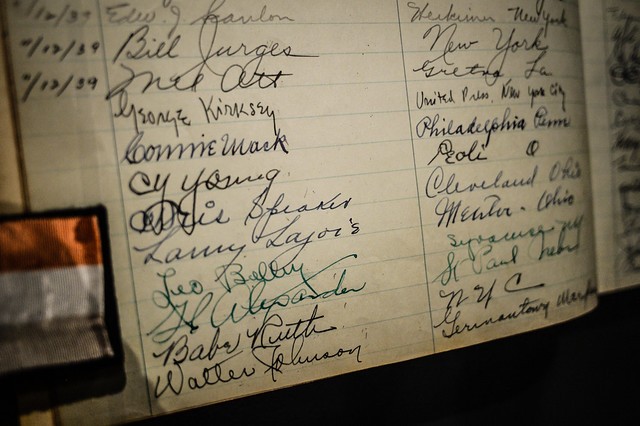 11/12/39 Edw. J. Scanlon Herkimer New York
11/12/39 Bill Jurges New York
11/13/39 Mel Ott Gretna, La.
George Kirksey United Press, New York City
Connie Mack Philadelphia Penn
Cy Young Peoli O
Tris Speaker Cleveland Ohio
Larry Lajoie Mentor - Ohio
Leo Bolley Syracuse NY
G Alexander St Paul Nebr
Babe Ruth N Y C
Walter Johnson Germantown